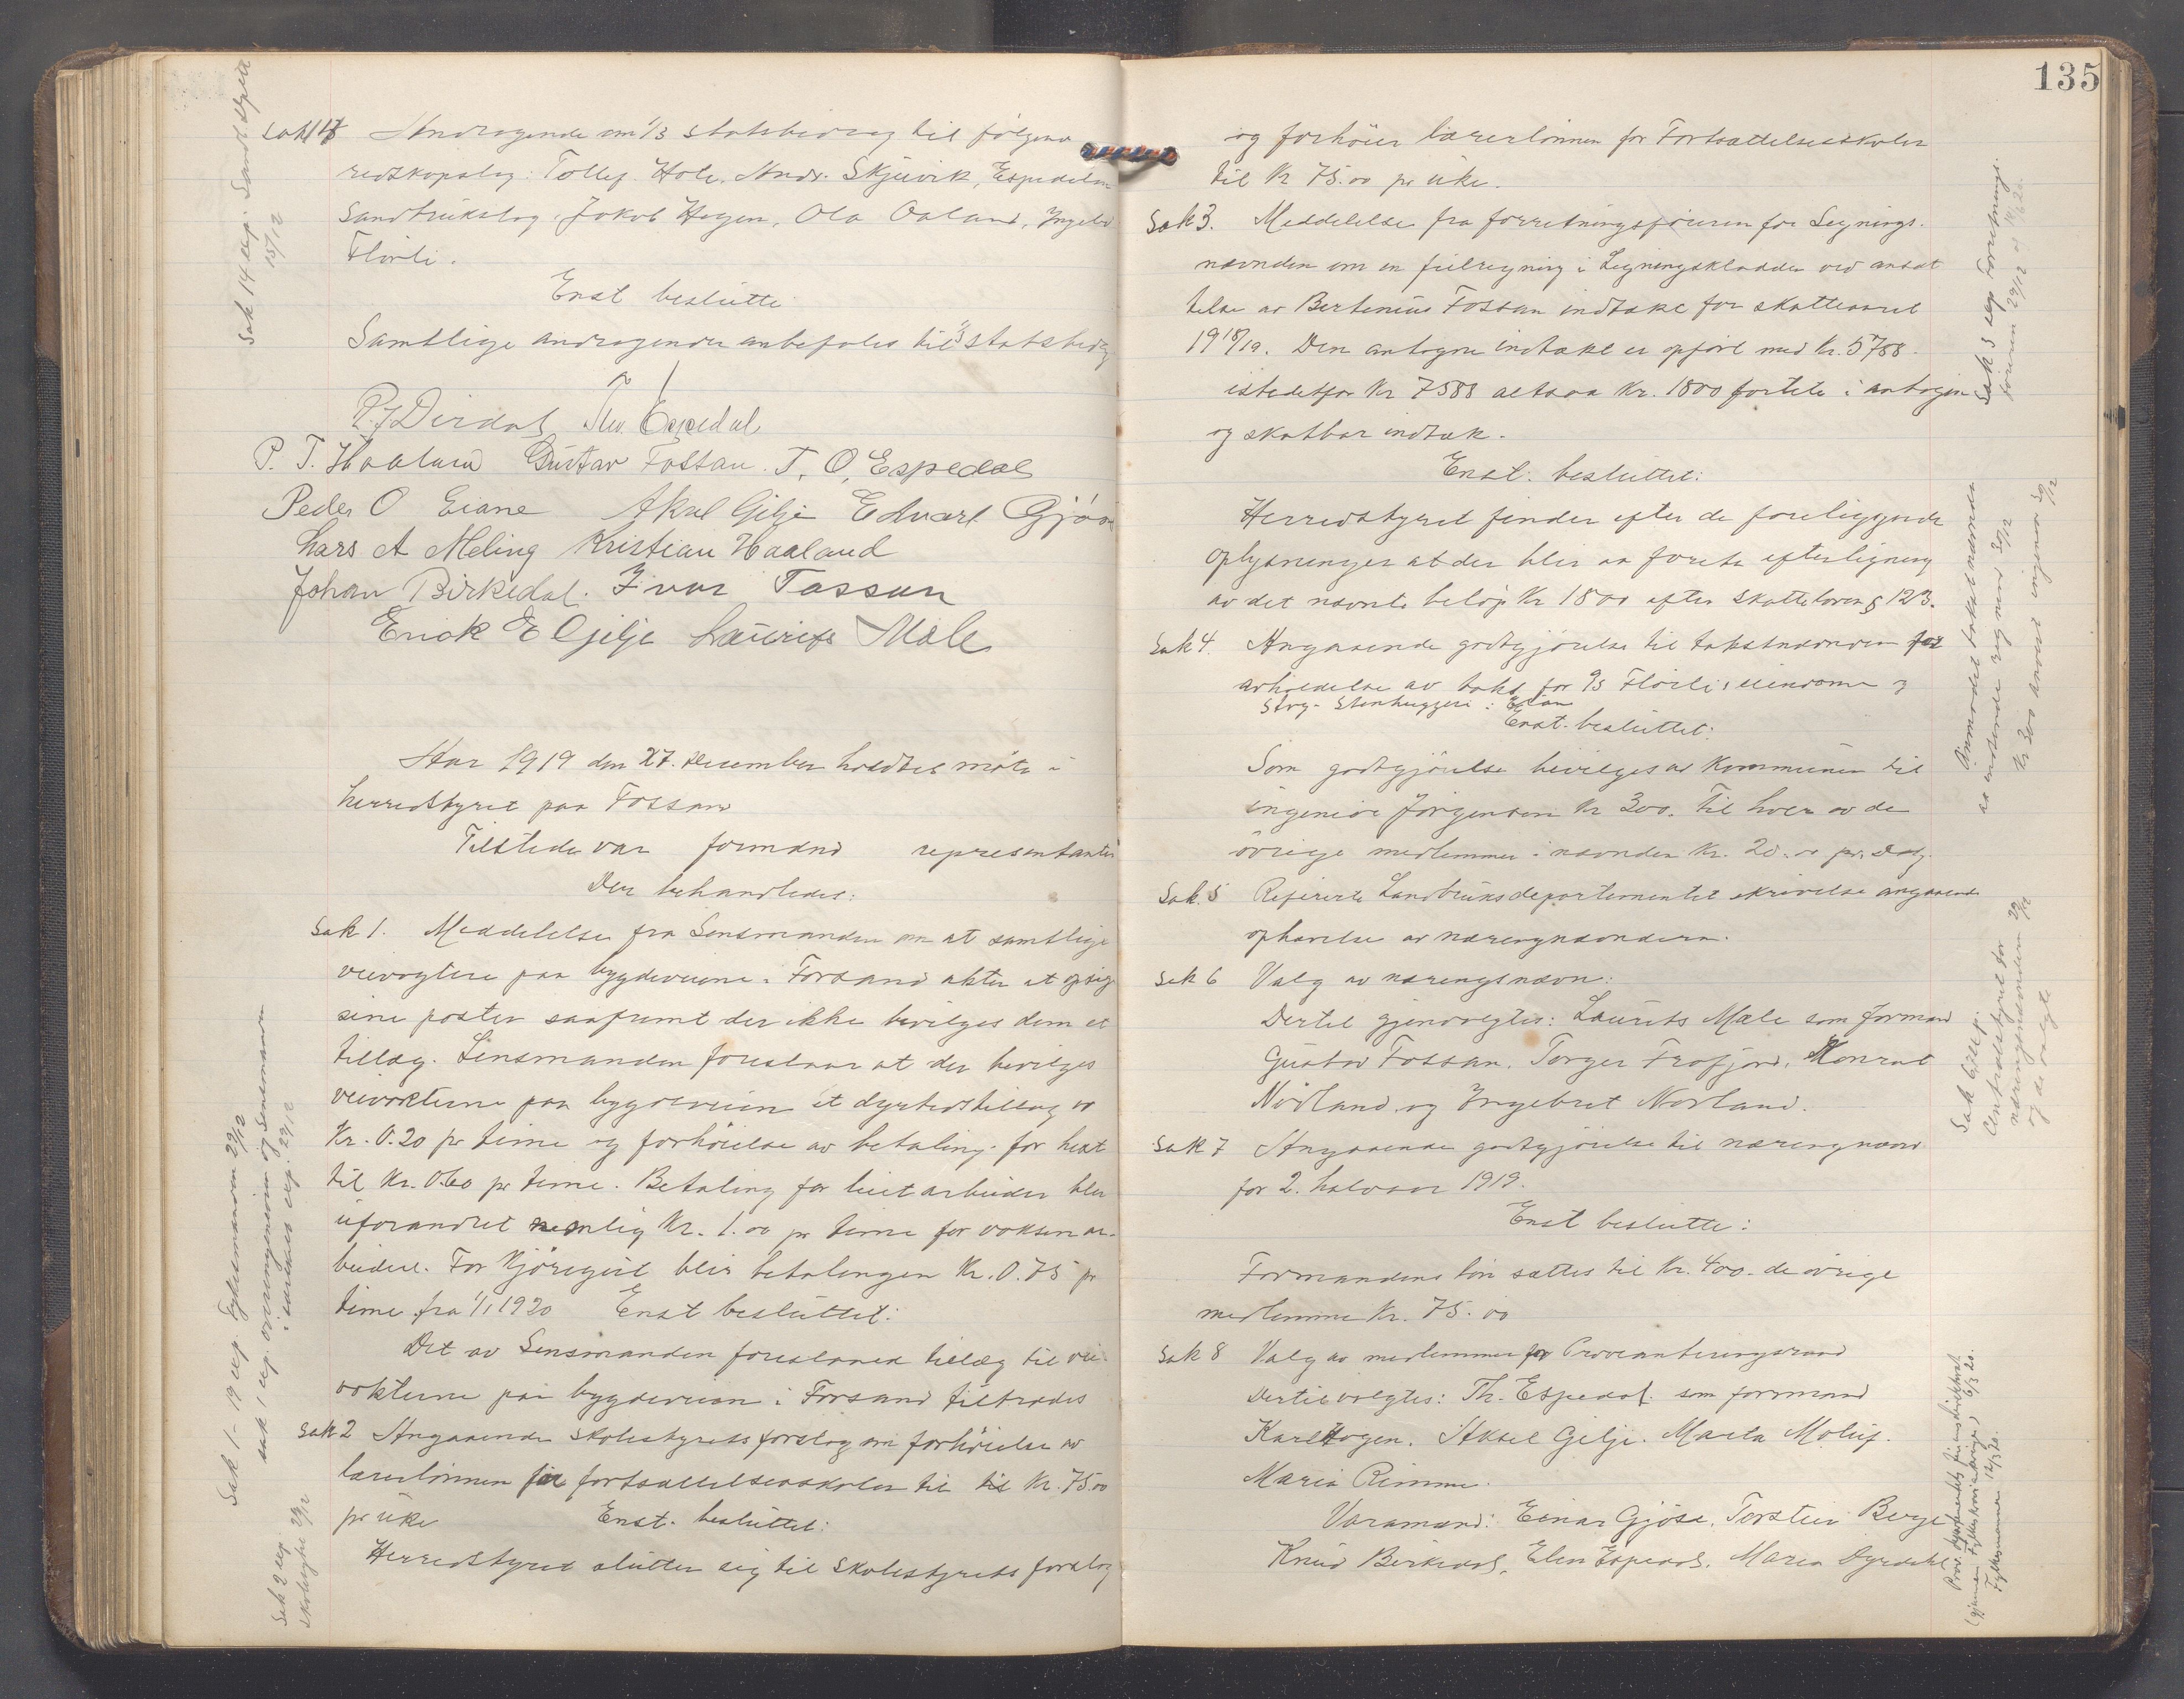 Sak 14 Andragende om 1/3 statsbidrag til følgende
redskapslag: Tollef Hole, Andr. Skjævik, Espedalen
Sandbrukslag, Jakob Hagen, Ola Oaland, Ingeb
Flørli.
Enst beslutte
Samtlige andragender anbefales til 1/3 statsbidrag
P. J. Dirdal Thv. Espedal
P. T. Haaland Gustav Fossan. T. O. Espedal
Peder O Eiane Aksel Gilje Edvart Gjøse
Lars A Meling Kristian Haaland
Johan Birkedal. Ivar Fossan
Enok E Gjilje Laurits Mæle
Sak 14 exp. 15/12
Aar 1919 den 27. december holdtes møte i
herredstyret paa Fossan
Tilstede var formand representanter
Der behandledes:
Sak 1. Meddelelse fra Lensmanden om at samtlige
veivogtere paa bygdeveiene i Forsand akter at opsige
sine poster saafremt der ikke bevilges dem et
tillæg. Lensmanden foreslaar at der bevilges
veivokterne paa bygdeveien et dyrtidstillæg av
Kr. 0.20 pr time og forhøielse av betaling for hest
til Kr. 0.60 pr time. Betaling for leiet arbeider blir
uforandret nemlig Kr. 1.00 pr time for voksen ar-
beider. For kjøregut blir betalingen Kr. 0.75 pr
time fra 1/1 1920 Enst besluttet:
Det av Lensmanden foreslaaed tillæg til vei-
vokterne paa bygdeveien i Forsand tiltrædes
Sak 2 Angaaende Skolestyrets forslag om forhøielse av
lærerlønnen for fortsættelsesskolen til til Kr. 75.00
pr uke Enst. besluttet:
Herredstyret slutter sig til Skolestyrets forslag
Sak 1 - 19 exp. Fylkesmanden 29/12
sak 1 exp. veiingeniøren og Lensmanden
29/12
Sak 2 exp
Skolestyret 29/12
135
og forhøier lærerlønnen for Fortsættelsesskolen
til Kr 75.00 pr uke.
Sak 3. Meddelelse fra forretningsføreren for Lignings-
nævnden om en feilregning i Ligningskladden ved ansæt
telse av Bertenius Fossan indtækt for skatteaaret
1918/19. Den antagne indtækt er opført med Kr. 5788
istedetfor Kr 7588 altsaa Kr. 1800 for lite i antagen
og skatbar indtæk.
Enst. besluttet:
Herredstyret finder efter de foreliggende
oplysninger at der blir aa foreta efterligning
av det nævnte beløp Kr 1800 efter Skatteloven § 123.
Sak 4. Angaaende godtgjørelse til takstnævnden for
avholdelse av takst for A/S Flørli's eiendomme og
Stvg. Stenhuggeri i
Enst. besluttet:
Som godtgjørelse bevilges av Kommunen til
ingeniør Jørgensen Kr 300. Til hver av de
øvrige medlemmer i nævnden Kr. 20.00 pr. Dag.
Sak 5 Refererte Landbruksdepartementet skrivelse angaaende
ophævelse av næringsnævndern.
Sak 6 Valg av næringsnævn.
Dertil gjenvalgtes: Laurits Mæle som formand
Gustav Fossan, Torger Frafjord, Konrat
Nordland og Ingebret Norland.
Sak 7 Angaaende godtgjørelse til næringsnævnd
for 2. halvaar 1919.
Enst beslutte:
Formandens løn sættes til Kr. 400. de øvrige
medlemme Kr. 75.00
Sak 8 Valg av medlemmer for Provianteringsraad
Dertil valgtes: Th. Espedal som formand
Karl Hagen. Aksel Gilje. Marta Moluf.
Maria Rimme.
Varamænd: Einar Gjøse, Torstein Berge
Knud Birkedal, Elen Espedal, Maria Dyrdahl
Sak 3 exp Forretnings-
føreren 29/12
Anmodet takstnævnda
aa indsende regning 30/12
Kr 300 anvist ingeniør 30/12
Sak 6/7 exp.
Centralstyret for
næringsnævndern 29/12
og de valgte
Fylkesmannen 12/3 20.